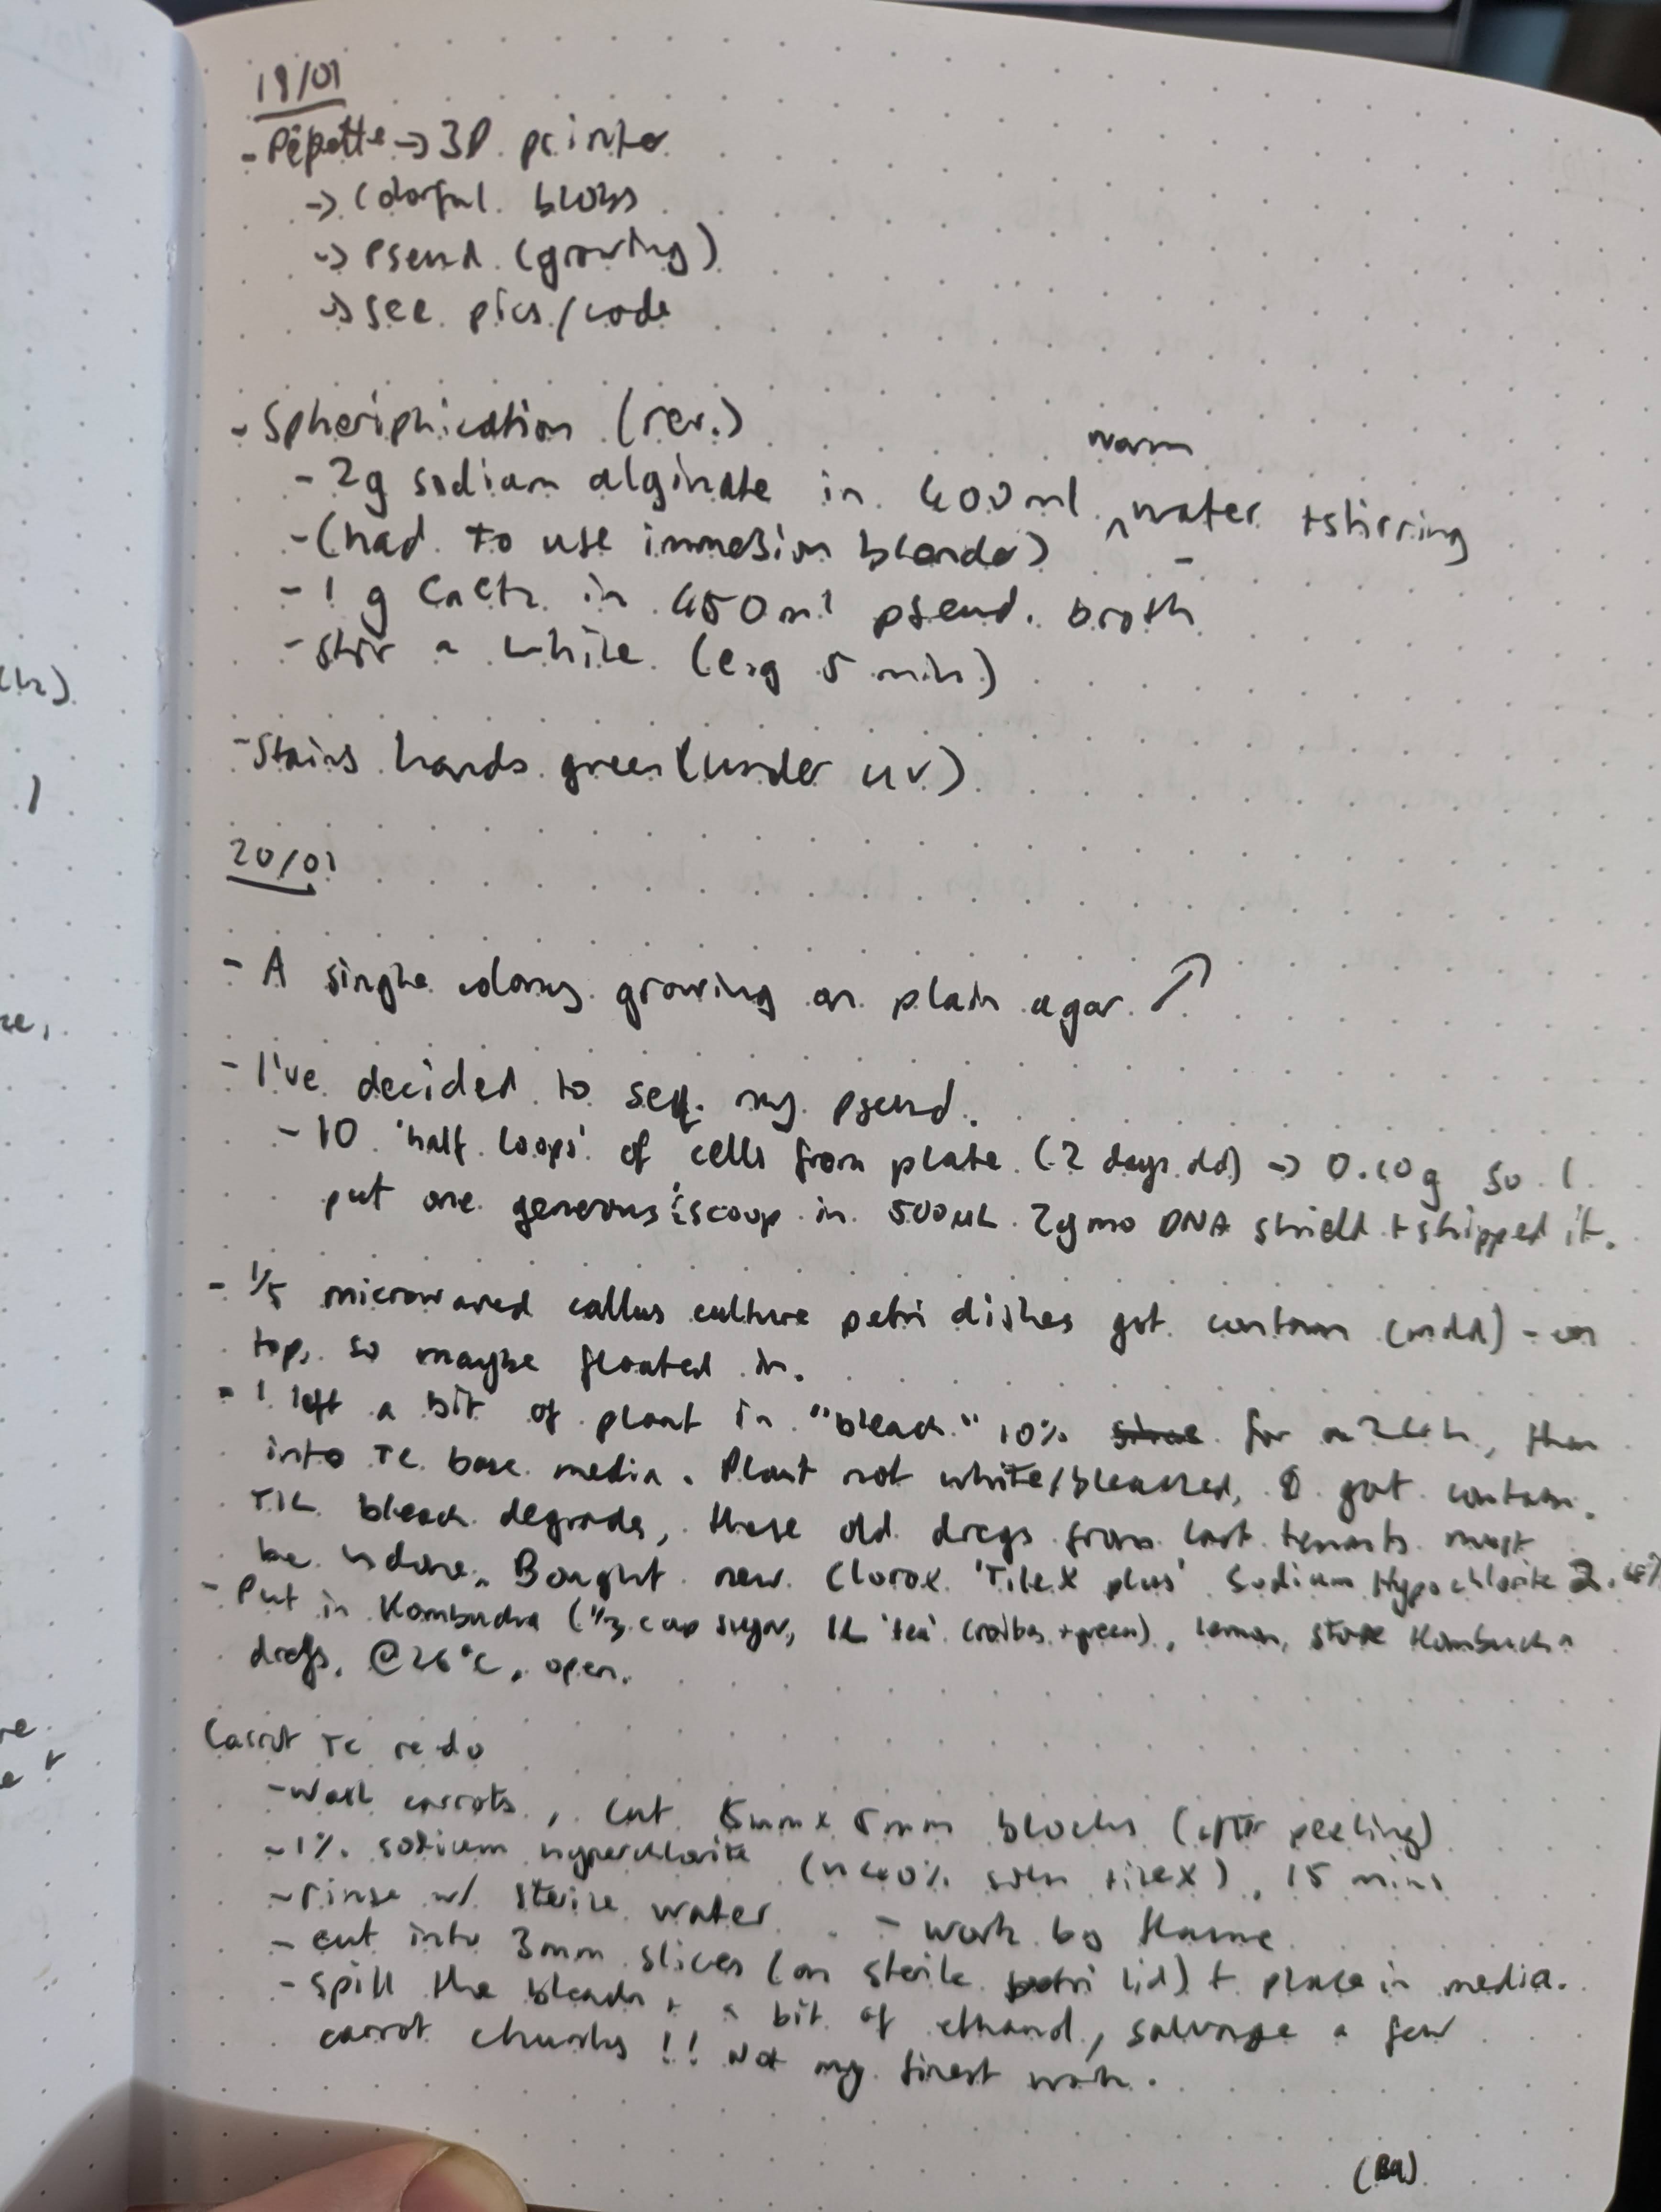 19/01
- Pipette → 3D printer
→ Colorful blobs
→ Pseud. (growing)
→ see pics/code
- Spheriphication (rev.)
- 2g sodium alginate in 400ml ^warm water + stirring
- (had to use immersion blender)
- 1 g CaCl2 in 450ml pseud. broth
- stir a while (e.g 5 min)
- Stains hands green (under UV)
20/01
- A single colony growing on plain agar ↗
- I've decided to seq. my pseud.
- 10 'half loops' of cells from plate (~2 days old) → 0.10g so I
put one generous scoop in 500µL Zymo DNA shield + shipped it.
- 1/5 microwaved callus culture petri dishes got contam (mold) - on
top, so maybe floated in.
- I left a bit of plant in "bleach" 10% for ~24h, then
into TC base media. Plant not white/bleached, & got contam.
TIL bleach degrades, these old dregs from last tenants must
be done. Bought new Clorox 'Tilex plus' Sodium Hypochlorite 2.4%
- Put in Kombucha (1/3 cup sugar, 1L 'tea' (roibos + green), lemon, store Kombucha
dregs, @26°C, open.
Carrot TC redo
- wash carrots, cut 5mm x 5mm blocks (after peeling)
- 1% sodium hyperchlorite (~40% soln tilex), 15 mins
- rinse w/ sterile water - work by flame
- cut into 3mm slices (on sterile petri lid) + place in media.
- spill the bleach + a bit of ethanol, salvage a few
carrot chunks!! Not my finest work.